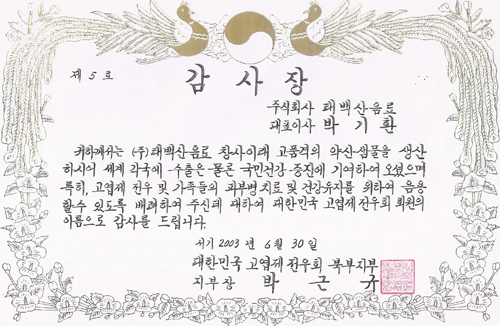 제 5 호
감 사 장
주식회사 태백산음료
대표이사 박 기 환
귀하께서는 (주)태백산음료 창사이래 고품격의 약산샘물을 생산
하시어 세계 각국에 수출은 물론 국민건강 증진에 기여하여 오셨으며
특히, 고엽제 전우 및 가족들의 피부병치료 및 건강유지를 위하여 음용
할수 있도록 배려하여 주신데 대하여 대한민국 고엽제전우회 회원의
이름으로 감사를 드립니다.
서기 2003 년 6 월 30 일
대한민국 고엽제 전우회 북부지부
지부장 박 근 규